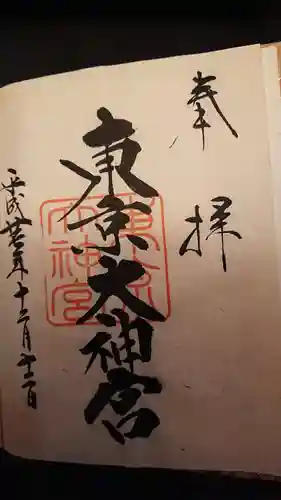 奉拝
東京大神宮
東京大神宮
平成廿五年十二月十二日